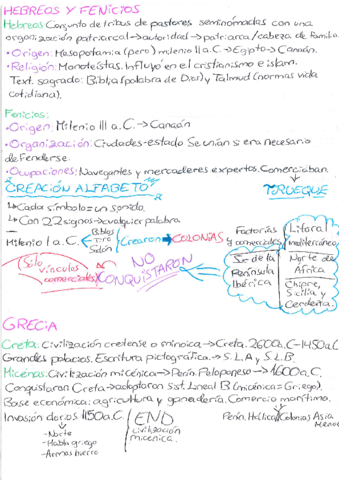 HEBREOS Y FENICIOS
Hebreos Conjunto de tribus de pastores seminómadas con una
organización patriarcal→autoridad→patriarca/cabeza de familia.
·Origen: Mesopotamia (pero) milenio II a.C.→Egipto→Canaán.
·Religión: Monoteístas. Influyó en el cristianismo e islam.
Text. sagrado: Biblia (palabra de Dios) y Talmud (normas vida
cotidiana).
Fenicios:
·Origen: Milenio III a.C.→Canaán
·Organización: Ciudades-estado Se unían si era necesario
defenderse.
·Ocupaciones: Navegantes y mercaderes expertos. Comerciaban
CREACIÓN ALFABETO
TRUEQUE
↳Cada símbolo=un sonido.
↳Con 22 signos→cualquier palabra
Milenio I a.C.
Biblos
Tiro
Sidón
Crearon→COLONIAS
(Sólo vínculos comerciales)
NO CONQUISTARON
Factorías y comerciales
Litoral mediterráneo
Sur de la Península Ibérica
Norte de África
Chipre, Sicilia y Cerdeña.
GRECIA
Creta: Civilización cretense o minoica→Creta. 2600a.C-1450a.C
Grandes palacios. Escritura pictográfica.→S.L.A y S.L.B.
Micenas: Civilización micénica→Penín. Peloponeso→1600a.C.
Conquistaron Creta→adoptaron Sist. Lineal B (micénico=Griego).
Base económica: agricultura y ganadería. Comercio marítimo.
Invasión dorios 1150a.C.
→Norte
→Habla griego
→Armas hierro
END
civilización
micénica.
Penín. Helénica/Colonias Asia
Menor